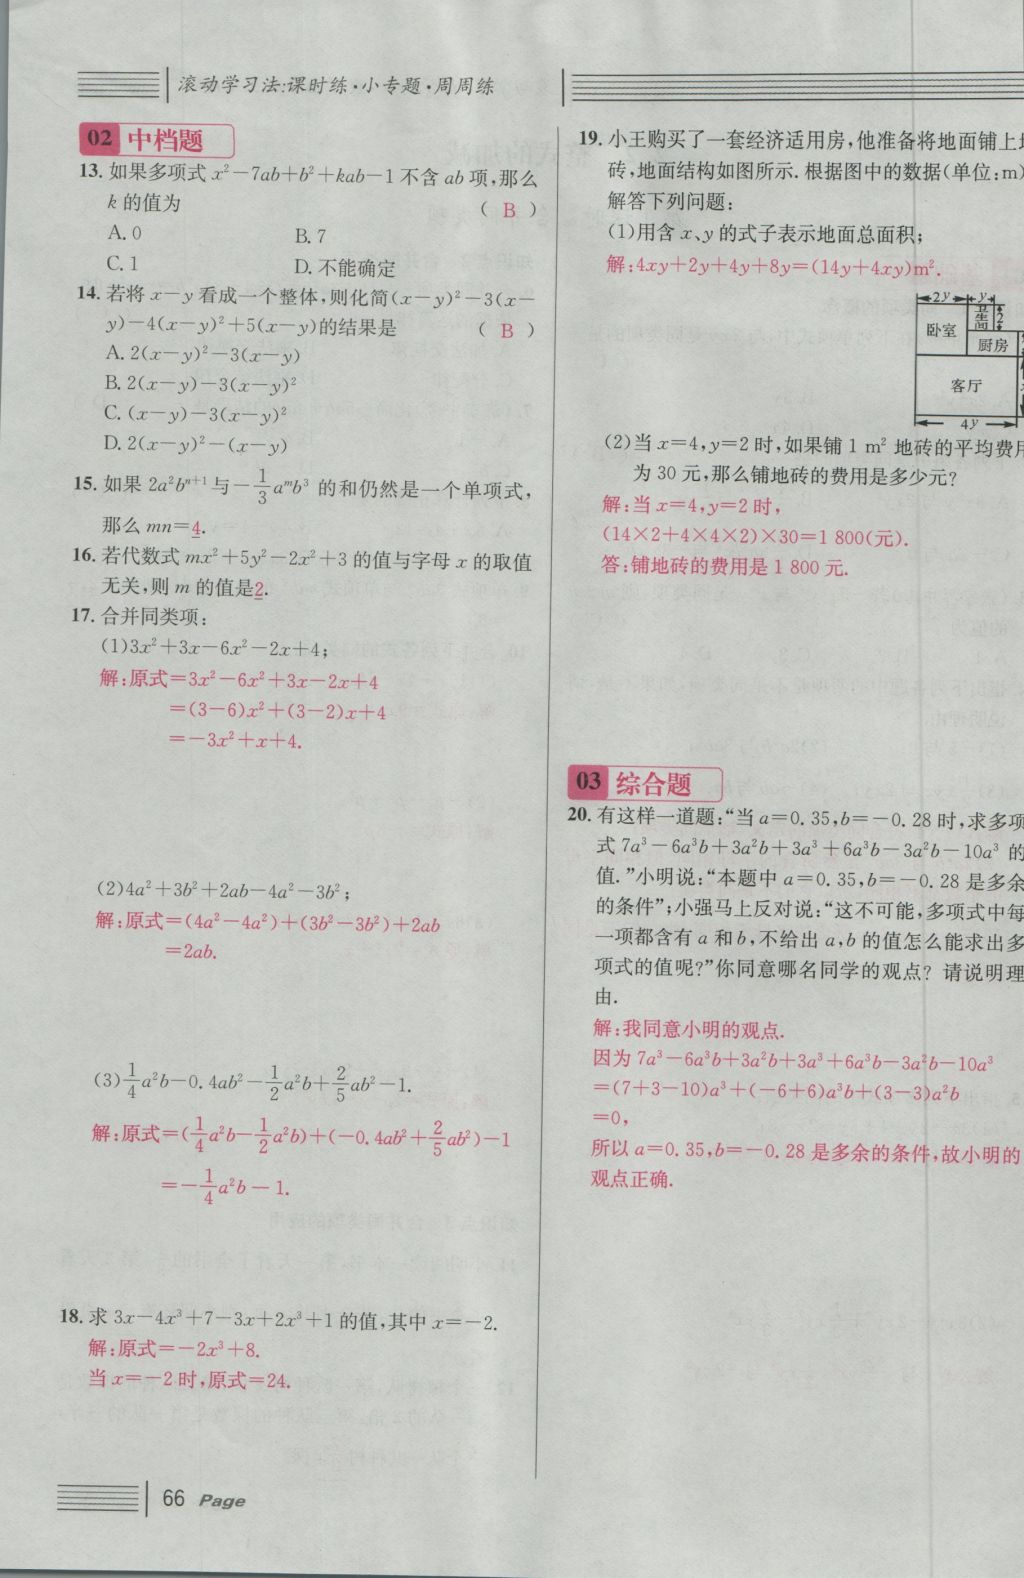 滚动学习法:课时练·小专题·周周练
02 中档题
13. 如果多项式 x²－7ab＋b²＋kab－1 不含 ab 项,那么
k 的值为 ( B )
A. 0 B. 7
C. 1 D. 不能确定
14. 若将 x－y 看成一个整体,则化简(x－y)²－3(x－
y)－4(x－y)²＋5(x－y)的结果是 ( B )
A. 2(x－y)²－3(x－y)
B. 2(x－y)－3(x－y)²
C. (x－y)－3(x－y)²
D. 2(x－y)²－(x－y)
15. 如果 2a²bⁿ⁺¹与－1/3 aᵐb³ 的和仍然是一个单项式,
那么 mn＝4.
16. 若代数式 mx²＋5y²－2x²＋3 的值与字母 x 的取值
无关,则 m 的值是2.
17. 合并同类项:
(1)3x²＋3x－6x²－2x＋4;
解:原式＝3x²－6x²＋3x－2x＋4
＝(3－6)x²＋(3－2)x＋4
＝－3x²＋x＋4.
(2)4a²＋3b²＋2ab－4a²－3b²;
解:原式＝(4a²－4a²)＋(3b²－3b²)＋2ab
＝2ab.
(3)1/4 a²b－0.4ab²－1/2 a²b＋2/5 ab²－1.
解:原式＝(1/4 a²b－1/2 a²b)＋(－0.4ab²＋2/5 ab²)－1
＝－1/4 a²b－1.
18. 求 3x－4x³＋7－3x＋2x³＋1 的值,其中 x＝－2.
解:原式＝－2x³＋8.
当 x＝－2 时,原式＝24.
66 Page
19. 小王购买了一套经济适用房,他准备将地面铺上地
砖,地面结构如图所示. 根据图中的数据(单位:m)
解答下列问题:
(1)用含 x、y 的式子表示地面总面积;
解:4xy＋2y＋4y＋8y＝(14y＋4xy)m².
2y y
卫生间 2
卧室
厨房
客厅
4y
(2)当 x＝4,y＝2 时,如果铺 1 m² 地砖的平均费用
为 30 元,那么铺地砖的费用是多少元?
解:当 x＝4,y＝2 时,
(14×2＋4×4×2)×30＝1 800(元).
答:铺地砖的费用是 1 800 元.
03 综合题
20. 有这样一道题:“当 a＝0.35,b＝－0.28 时,求多项
式 7a³－6a³b＋3a²b＋3a³＋6a³b－3a²b－10a³ 的
值.”小明说:“本题中 a＝0.35,b＝－0.28 是多余
的条件”;小强马上反对说:“这不可能,多项式中每
一项都含有 a 和 b,不给出 a,b 的值怎么能求出多
项式的值呢?”你同意哪名同学的观点? 请说明理
由.
解:我同意小明的观点.
因为 7a³－6a³b＋3a²b＋3a³＋6a³b－3a²b－10a³
＝(7＋3－10)a³＋(－6＋6)a³b＋(3－3)a²b
＝0,
所以 a＝0.35,b＝－0.28 是多余的条件,故小明的
观点正确.